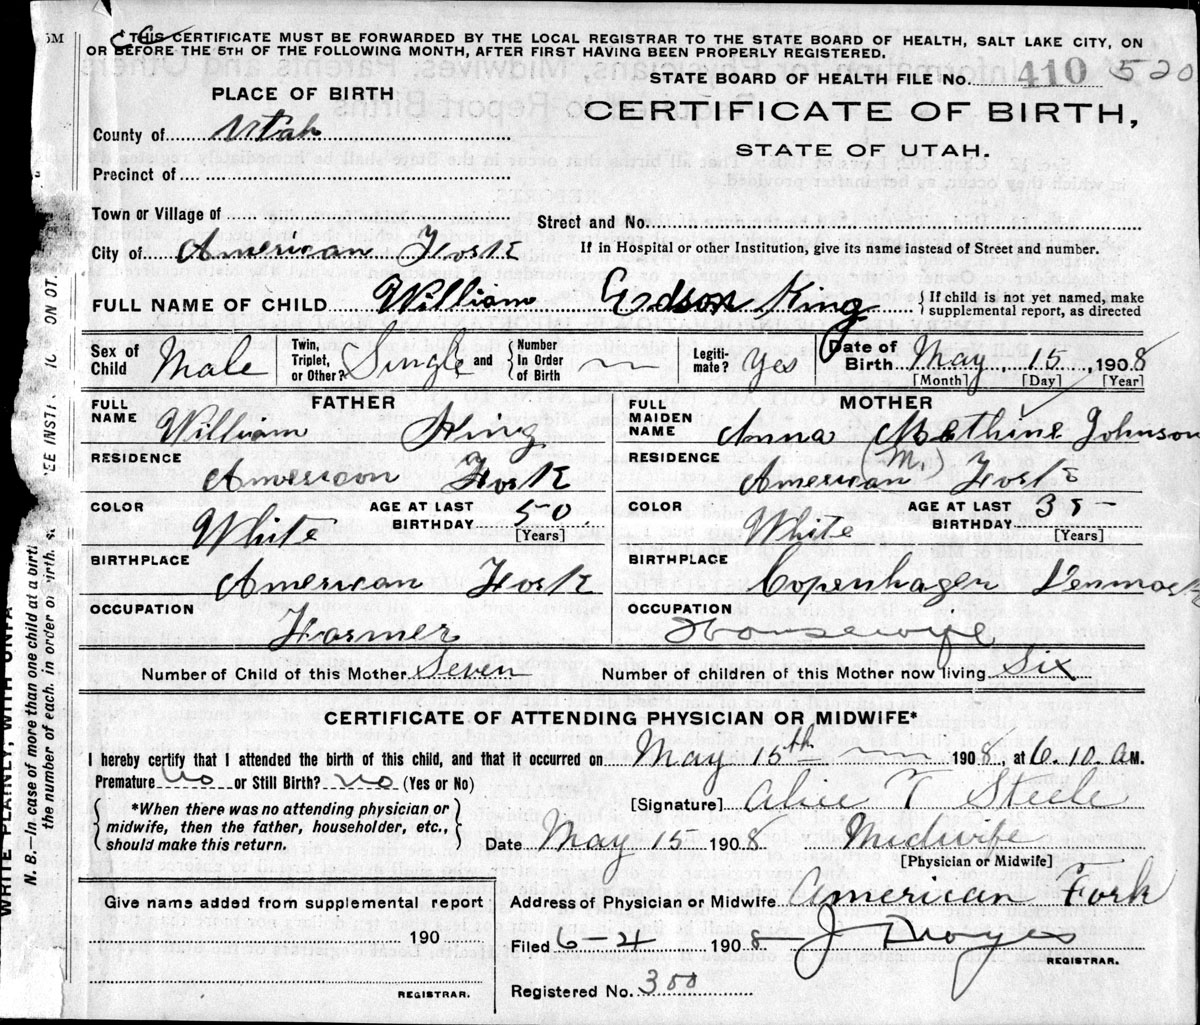 THIS CERTIFICATE MUST BE FORWARDED BY THE LOCAL REGISTRAR TO THE STATE BOARD OF HEALTH, SALT LAKE CITY, ON
OR BEFORE THE 5TH OF THE FOLLOWING MONTH, AFTER FIRST HAVING BEEN PROPERLY REGISTERED.
STATE BOARD OF HEALTH FILE No. 410 520
PLACE OF BIRTH
CERTIFICATE OF BIRTH,
STATE OF UTAH.
County of Utah
Precinct of
Town or Village of
Street and No.
City of American Fork
If in Hospital or other Institution, give its name instead of Street and number.
FULL NAME OF CHILD William Edson King
{ If child is not yet named, make
supplemental report, as directed
Sex of Child Male
Twin, Triplet, or Other? Single and { Number In Order of Birth
Legiti- mate? Yes
Date of Birth May, 15, 1908
[Month] [Day] [Year]
FATHER
FULL NAME William King
MOTHER
FULL MAIDEN NAME Anna Methine Johnson
(M.)
RESIDENCE American Fork
RESIDENCE American Fork
COLOR White
AGE AT LAST BIRTHDAY 50. [Years]
COLOR White
AGE AT LAST BIRTHDAY 38 [Years]
BIRTHPLACE American Fork
BIRTHPLACE Copenhagen Denmark
OCCUPATION Farmer
OCCUPATION Housewife
Number of Child of this Mother Seven
Number of children of this Mother now living Six
CERTIFICATE OF ATTENDING PHYSICIAN OR MIDWIFE*
I hereby certify that I attended the birth of this child, and that it occurred on May 15th 1908, at 6.10. AM.
Premature No or Still Birth? No (Yes or No)
{ *When there was no attending physician or
midwife, then the father, householder, etc.,
should make this return. }
[Signature] Alice T Steele
Date May 15 1908 Midwife
[Physician or Midwife]
Address of Physician or Midwife American Fork
Give name added from supplemental report
190
REGISTRAR.
Filed 6-4 1908 J Noyes
REGISTRAR.
Registered No. 300
WRITE PLAINLY, WITH UNFA
N. B.—In case of more than one child at a birt
the number of each, in order of birth.
EE INST
ON OT
5M